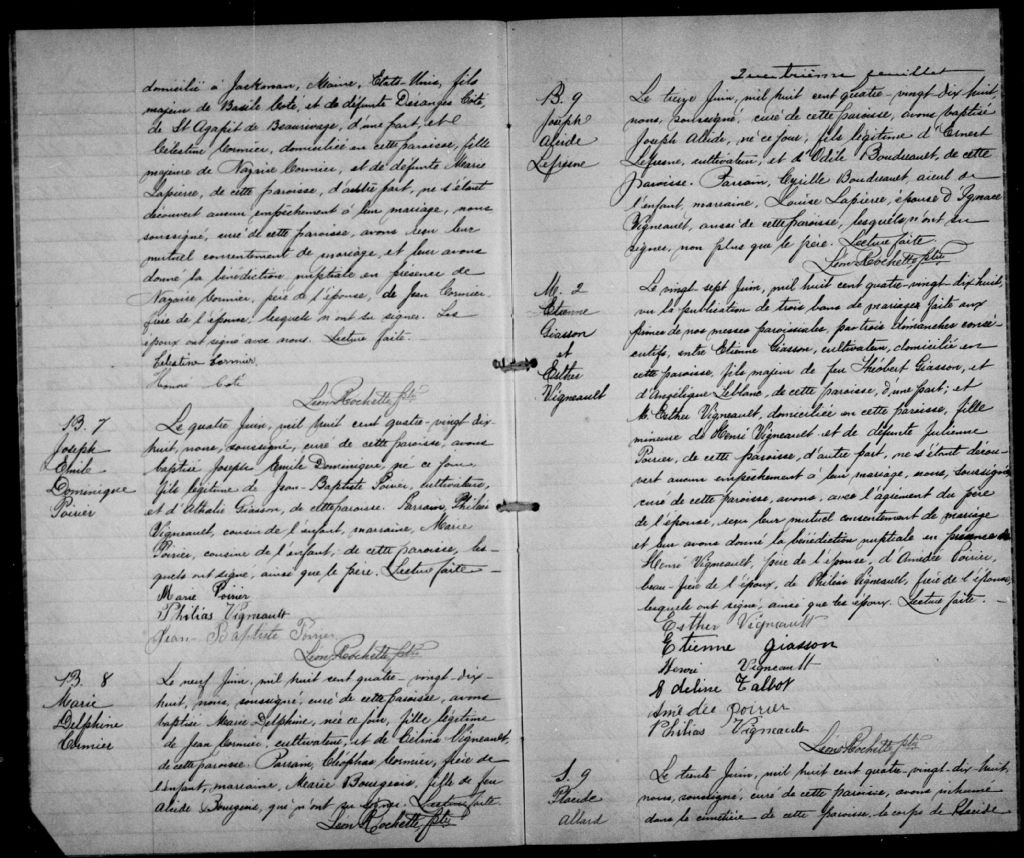 domicilié à Jackman, Maine, Etats-Unis, fils
majeur de Basile Coté, et de défunte Désanges Coté,
de St Agapit de Beaurivage, d'une part, et
Célestine Cormier, domiciliée en cette paroisse, fille
majeure de Nazaire Cormier, et de défunte Marie
Lapierre, de cette paroisse, d'autre part, ne s'étant
découvert aucun empêchement à leur mariage, nous
soussigné, curé de cette paroisse, avons reçu leur
mutuel consentement de mariage et leur avons
donné la bénédiction nuptiale en présence de
Nazaire Cormier, père de l'épouse, de Jean Cormier,
frère de l'épouse, lesquels n'ont su signer. Les
époux ont signé avec nous. Lecture faite.
Célestine Cormier
Honoré Coté
Léon Rochette ptre
B. 7
Joseph
Emile
Dominique
Poirier
Le quatre Juin, mil huit cent quatre-vingt-dix
huit, nous, soussigné, curé de cette paroisse, avons
baptisé Joseph Emile Dominique, né ce jour
fils légitime de Jean-Baptiste Poirier, cultivateur,
et d'Athalie Giasson, de cette paroisse. Parrain, Philias
Vigneault, cousin de l'enfant, marraine, Marie
Poirier, cousine de l'enfant, de cette paroisse, les-
quels ont signé, ainsi que le père. Lecture faite
Marie Poirier
Philias Vigneault
Jean-Baptiste Poirier
Léon Rochette ptre
B. 8
Marie
Delphine
Cormier
Le neuf Juin, mil huit cent quatre-vingt-dix-
huit, nous, soussigné, curé de cette paroisse, avons
baptisé Marie Delphine, née ce jour, fille légitime
de Jean Cormier, cultivateur, et de Célina Vigneault,
de cette paroisse. Parrain, Cléophas Cormier, frère de
l'enfant, marraine, Marie Bourgeois, fille de feu
Alcide Bourgeois, qui n'ont su signer. Lecture faite
Léon Rochette ptre
Quatrième feuillet
B. 9
Joseph
Alcide
Lefresne
Le treize Juin, mil huit cent quatre-vingt-dix-huit,
nous, soussigné, curé de cette paroisse, avons baptisé
Joseph Alcide, né ce jour, fils légitime d'Ernest
Lefresne, cultivateur, et d'Odile Boudreault, de cette
paroisse. Parrain, Cyrille Boudreault, aïeul de
l'enfant, marraine, Louise Lapierre, épouse d'Ignace
Vigneault, aussi de cette paroisse, lesquels n'ont su
signer, non plus que le père. Lecture faite
Léon Rochette ptre
M. 2
Etienne
Giasson
et
Esther
Vigneault
Le vingt sept Juin, mil huit cent quatre-vingt-dix-huit,
vu la publication de trois bans de mariage faite aux
prônes de nos messes paroissiales, par trois dimanches consé-
cutifs, entre Etienne Giasson, cultivateur, domicilié en
cette paroisse, fils majeur de feu Théobert Giasson, et
d'Angélique Leblanc, de cette paroisse, d'une part; et
M. Esther Vigneault, domiciliée en cette paroisse, fille
mineure de Henri Vigneault et de défunte Julienne
Poirier, de cette paroisse, d'autre part, ne s'étant décou-
vert aucun empêchement à leur mariage, nous, soussigné
curé de cette paroisse, avons, avec l'agrément du père
de l'épouse, reçu leur mutuel consentement de mariage
et leur avons donné la bénédiction nuptiale en présence de
Henri Vigneault, père de l'épouse, d'Amédée Poirier,
beau-frère de l'époux, de Philias Vigneault, frère de l'épouse,
lesquels ont signé, ainsi que les époux. Lecture faite.
Esther Vigneault
Etienne giasson
Henri Vigneault
Adeline Talbot
Amédée poirier
Philias Vigneault
Léon Rochette ptre
S. 9
Placide
Allard
Le trente Juin, mil huit cent quatre-vingt-dix-huit,
nous, soussigné, curé de cette paroisse, avons inhumé
dans le cimetière de cette paroisse, le corps de Placide